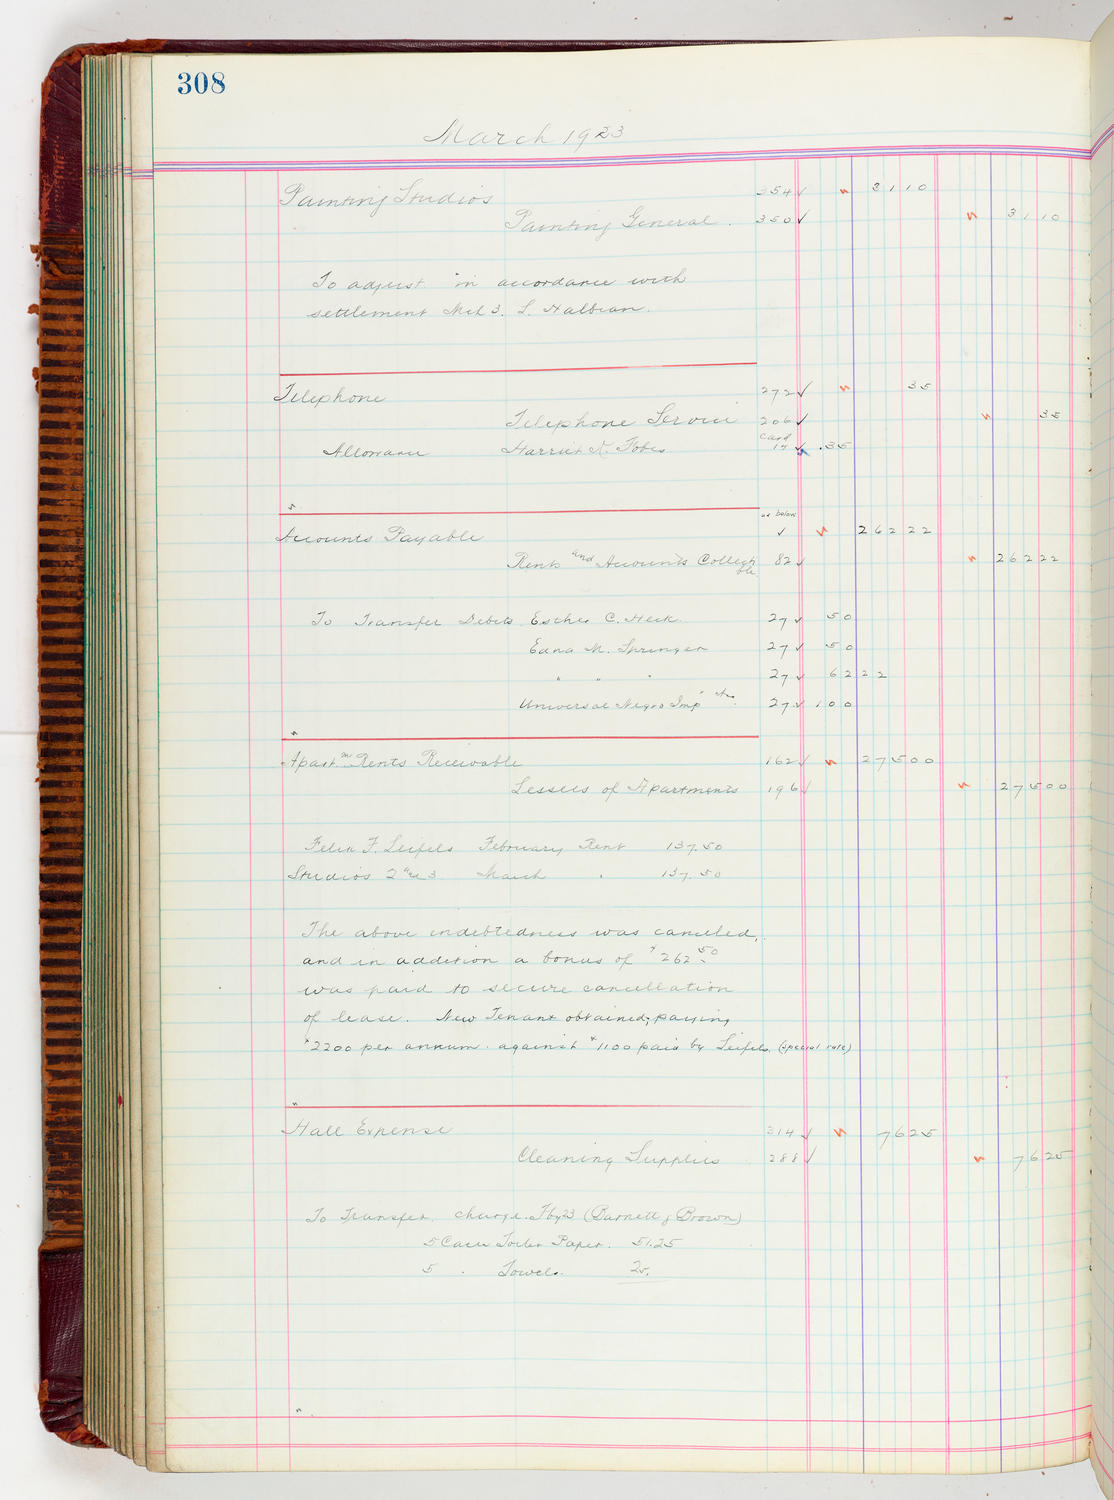 308
March 1923
Painting Studios 354 ✓ 31 10
Painting General. 350 ✓ 31 10
To adjust in accordance with
settlement Mch 3. L. Halbian.
Telephone 272 ✓ 35
Telephone Service 206 ✓ 35
Allowance Harriet K. Fobes card 17 ✓ .35
as below
Accounts Payable ✓ 262 22
Rents and Accounts Collectible 82 ✓ 262 22
To Transfer Debits C. Heck. 27 ✓ 50
Edna M. Springer 27 ✓ 50
" " " 27 ✓ 62 22
Universal Negro Imp't Ass. 27 ✓ 100
Apart. Rents Receivable 162 ✓ 275 00
Lessees of Apartments 196 ✓ 275 00
Felix F. Leifels February Rent 137.50
Studios 2 and 3 March " 137.50
The above indebtedness was canceled,
and in addition a bonus of $262.50
was paid to secure cancellation
of lease. New Tenant obtained, paying
$2200 per annum against $1100 paid by Leifels, (special rate)
Hall Expense 314 ✓ 76 25
Cleaning Supplies 288 ✓ 76 25
To Transfer charge Fby 23 (Barnett & Brown)
5 Cases Toilet Paper. 51.25
5 " Towels. 25.